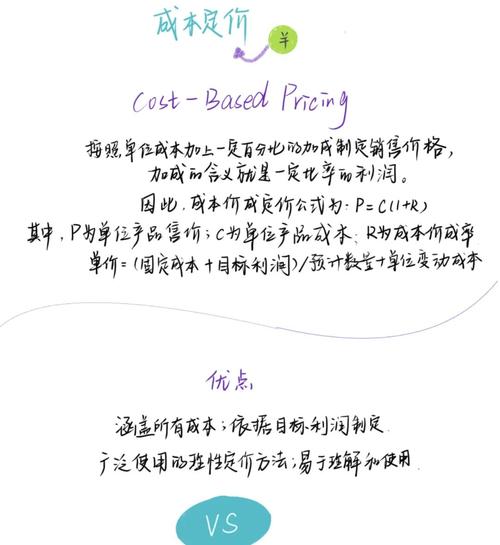 成本定价
¥
Cost-Based Pricing
按照单位成本加上一定百分比的加成制定销售价格,
加成的含义就是一定比率的利润。
因此,成本价成定价公式为:P=C(1+R)
其中,P为单位产品售价;C为单位产品成本;R为成本价成率
单价=(固定成本+目标利润)/预计数量+单位变动成本
优点
涵盖所有成本;依据目标利润制定
广泛使用的理性定价方法;易于理解和使用
VS